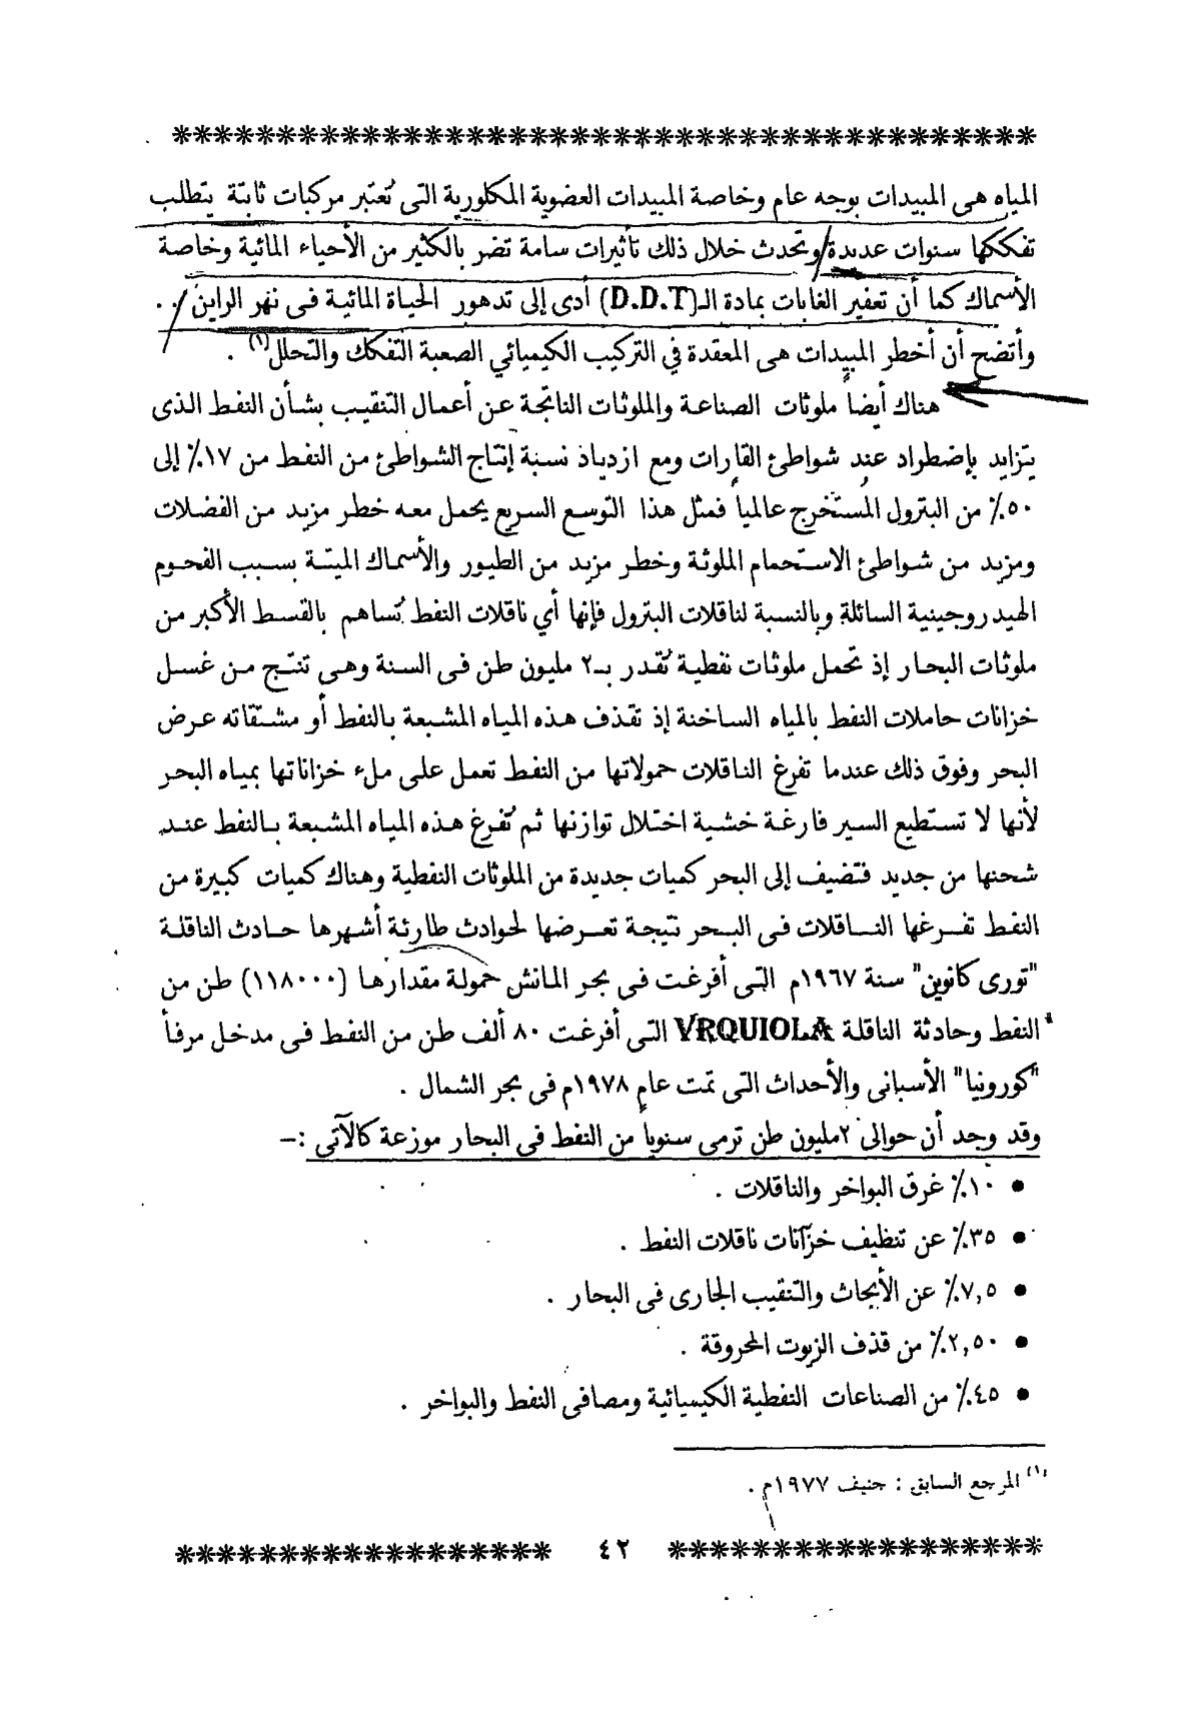 المياه هى المبيدات بوجه عام وخاصة المبيدات العضوية المكلورية التى تُعتبر مركبات ثابتة يتطلب
تفككها سنوات عديدة وتحدث خلال ذلك تأثيرات سامة تضر بالكثير من الأحياء المائية وخاصة
الأسماك كما أن تعفير الغابات بمادة الـ(D.D.T) أدى إلى تدهور الحياة المائية فى نهر الراين . .
وأتضح أن أخطر المبيدات هى المعقدة في التركيب الكيميائي الصعبة التفكك والتحلل(١) .
هناك أيضاً ملوثات الصناعة والملوثات الناتجة عن أعمال التنقيب بشأن النفط الذى
يتزايد بإضطراد عند شواطئ القارات ومع ازدياد نسبة إنتاج الشواطئ من النفط من ١٧٪ إلى
٥٠٪ من البترول المُستخرج عالمياً فمثل هذا التوسع السريع يحمل معه خطر مزيد من الفضلات
ومزيد من شواطئ الاستحمام الملوثة وخطر مزيد من الطيور والأسماك الميتة بسبب الفحوم
الهيدروجينية السائلة وبالنسبة لناقلات البترول فإنها أي ناقلات النفط تُساهم بالقسط الأكبر من
ملوثات البحار إذ تحمل ملوثات نفطية تُقدر بـ٢ مليون طن فى السنة وهى تنتج من غسل
خزانات حاملات النفط بالمياه الساخنة إذ تقذف هذه المياه المشبعة بالنفط أو مشتقاته عرض
البحر وفوق ذلك عندما تفرغ الناقلات حمولاتها من النفط تعمل على ملء خزاناتها بمياه البحر
لأنها لا تستطيع السير فارغة خشية اختلال توازنها ثم تُفرغ هذه المياه المشبعة بالنفط عند
شحنها من جديد فتضيف إلى البحر كميات جديدة من الملوثات النفطية وهناك كميات كبيرة من
النفط تفرغها الناقلات فى البحر نتيجة تعرضها لحوادث طارئة أشهرها حادث الناقلة
"تورى كانوين" سنة ١٩٦٧م التى أفرغت فى بحر المانش حمولة مقدارها (١١٨٠٠٠) طن من
النفط وحادثة الناقلة VRQUIOLA التى أفرغت ٨٠ ألف طن من النفط فى مدخل مرفأ
"كورونيا" الأسبانى والأحداث التى تمت عام ١٩٧٨م فى بحر الشمال .
وقد وجد أن حوالى ٢مليون طن ترمى سنوياً من النفط فى البحار موزعة كالآتى :–
● ١٠٪ غرق البواخر والناقلات .
● ٣٥٪ عن تنظيف خزآنات ناقلات النفط .
● ٧,٥٪ عن الأبحاث والتنقيب الجارى فى البحار .
● ٢,٥٠٪ من قذف الزيوت المحروقة .
● ٤٥٪ من الصناعات النفطية الكيميائية ومصافى النفط والبواخر .
(١) المرجع السابق : جنيف ١٩٧٧م .
٤٢